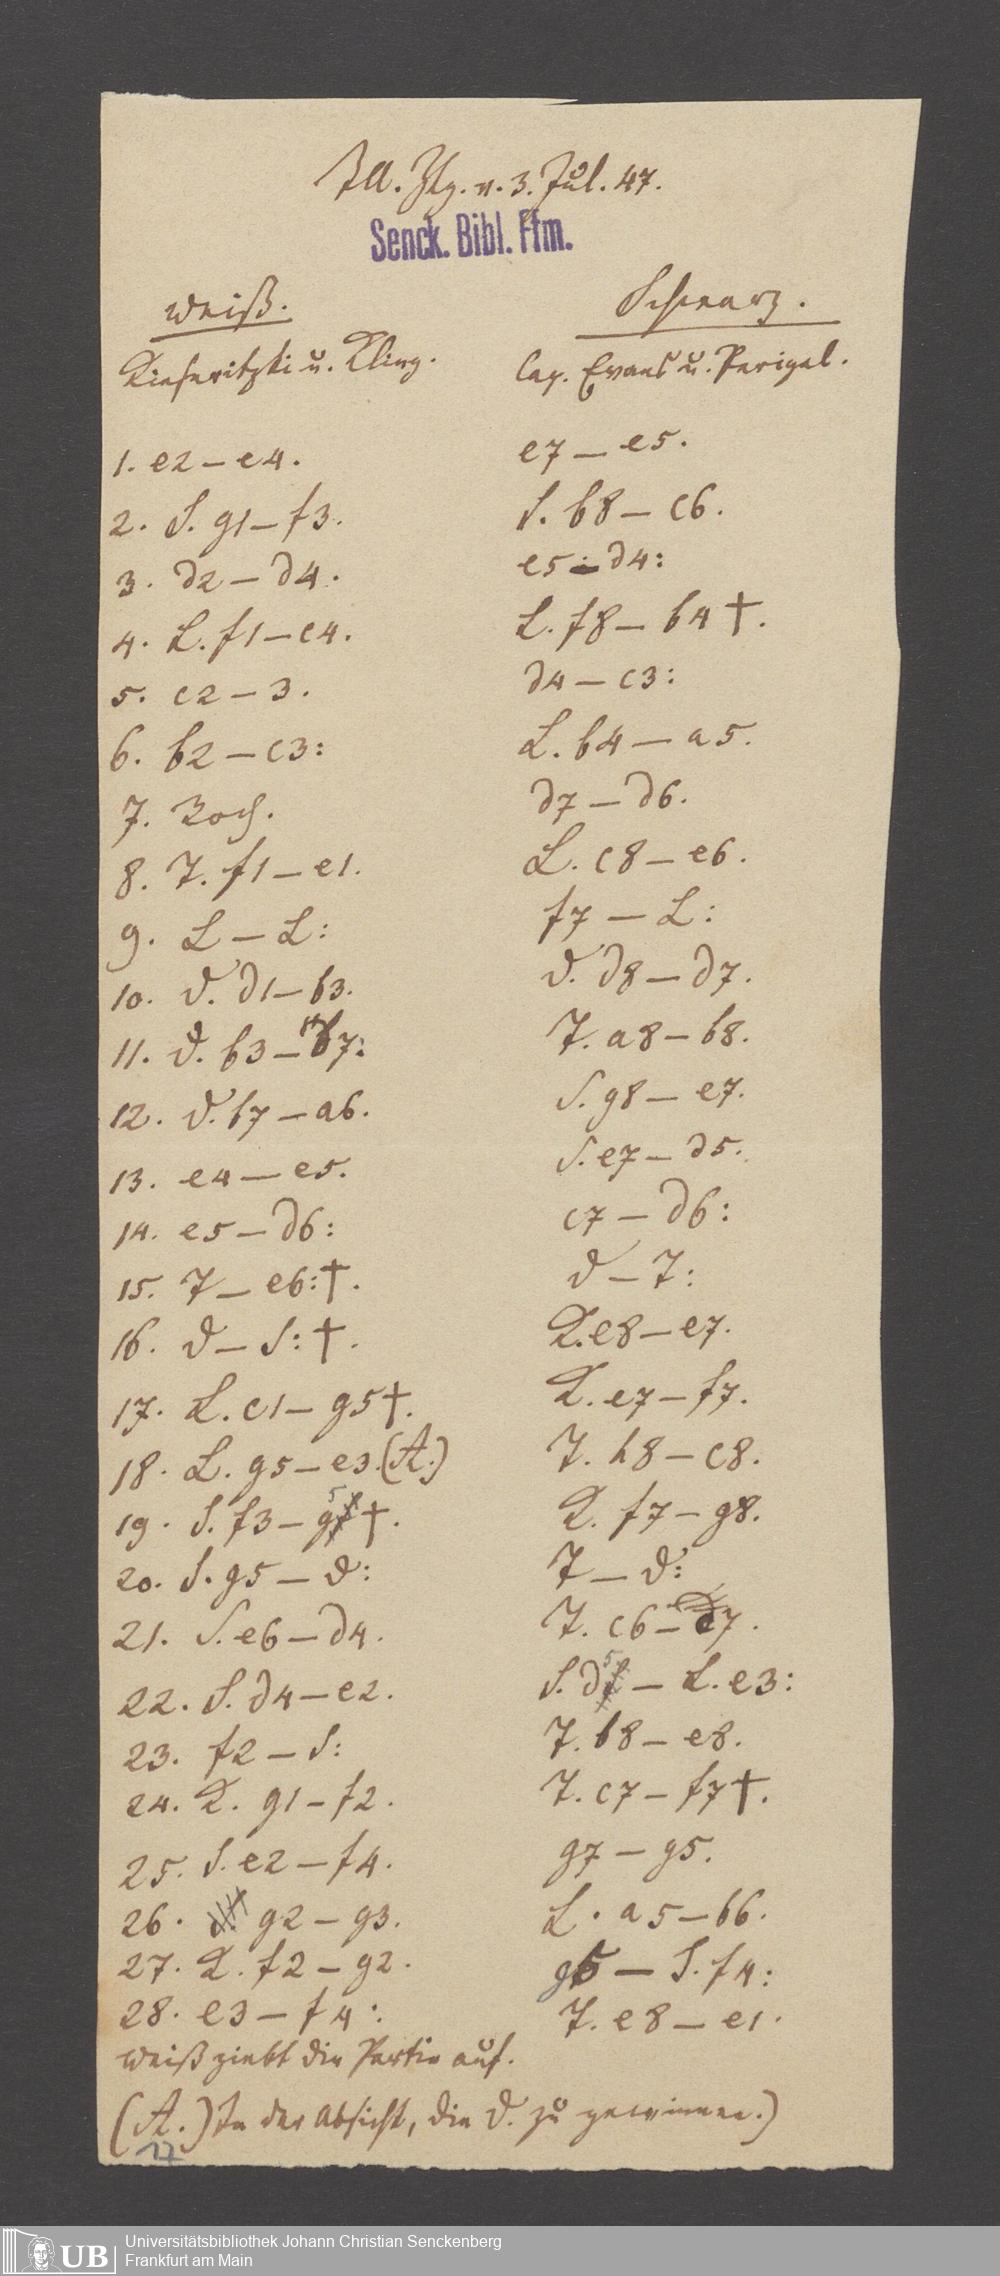 Ill. Ztg. v. 3. Jul. 47.
Senck. Bibl. Ffm.
Weiß. Schwarz.
Kieseritzki u. Kling. Cap. Evans u. Perigal.
1. e2 — e4. e7 — e5.
2. S. g1 — f3. S. b8 — c6.
3. d2 — d4. e5 — d4:
4. L. f1 — c4. L. f8 — b4 †.
5. c2 — 3. d4 — c3:
6. b2 — c3: L. b4 — a5.
7. Roch. d7 — d6.
8. T. f1 — e1. L. c8 — e6.
9. L — L: f7 — L:
10. D. d1 — b3. D. d8 — d7.
11. D. b3 — b7: T. a8 — b8.
12. D. b7 — a6. S. g8 — e7.
13. e4 — e5. S. e7 — d5.
14. e5 — d6: c7 — d6:
15. T — e6: †. D — T:
16. D — S: †. K. e8 — e7.
17. L. c1 — g5 †. K. e7 — f7.
18. L. g5 — e3. (A.) T. h8 — c8.
19. S. f3 — g5 †. K. f7 — g8.
20. S. g5 — D: T — D:
21. S. e6 — d4. T. c6 — c7.
22. S. d4 — e2. S. d5 — L. e3:
23. f2 — S: T. b8 — e8.
24. K. g1 — f2. T. c7 — f7 †.
25. S. e2 — f4. g7 — g5.
26. g2 — g3. L. a5 — b6.
27. K. f2 — g2. g5 — S. f4:
28. e3 — f4: T. e8 — e1.
Weiß giebt die Partie auf.
(A.) In der Absicht, die D. zu gewinnen.)
17
UB
Universitätsbibliothek Johann Christian Senckenberg
Frankfurt am Main